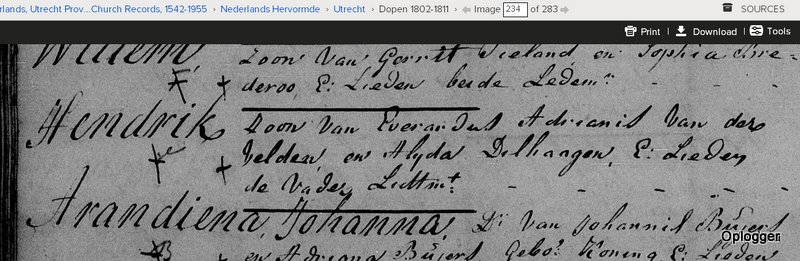 rlands, Utrecht Prov...Church Records, 1542-1955 › Nederlands Hervormde › Utrecht › Dopen 1802-1811 › Image 234 of 283 SOURCES
Print | Download | Tools
Willem, Zoon Van Gerrit en Sophia Bre=
deroo E: Lieden beide Ledem:n
Hendrik Zoon Van Everardus Adrianis Van der
Velden, en Alyda Dilhaagen, E: Lieden
de Vader Lidtm.t
Arandiena, Johanna, D.r Van Johannis Büjers
en Adriana Büjers Gebo.r Koning E: Lieden
Oplogger